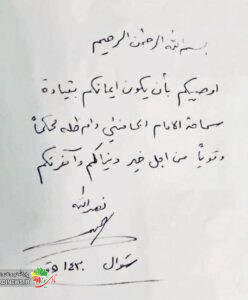 بسم الله الرحمن الرحيم
اوصيكم بأن يكون ايمانكم بقيادة
سماحة الامام الخامنئي دام ظله محكماً
وقوياً من اجل خير دنياكم وآخرتكم
نصر الله
شوال ١٤٣٠ هـ